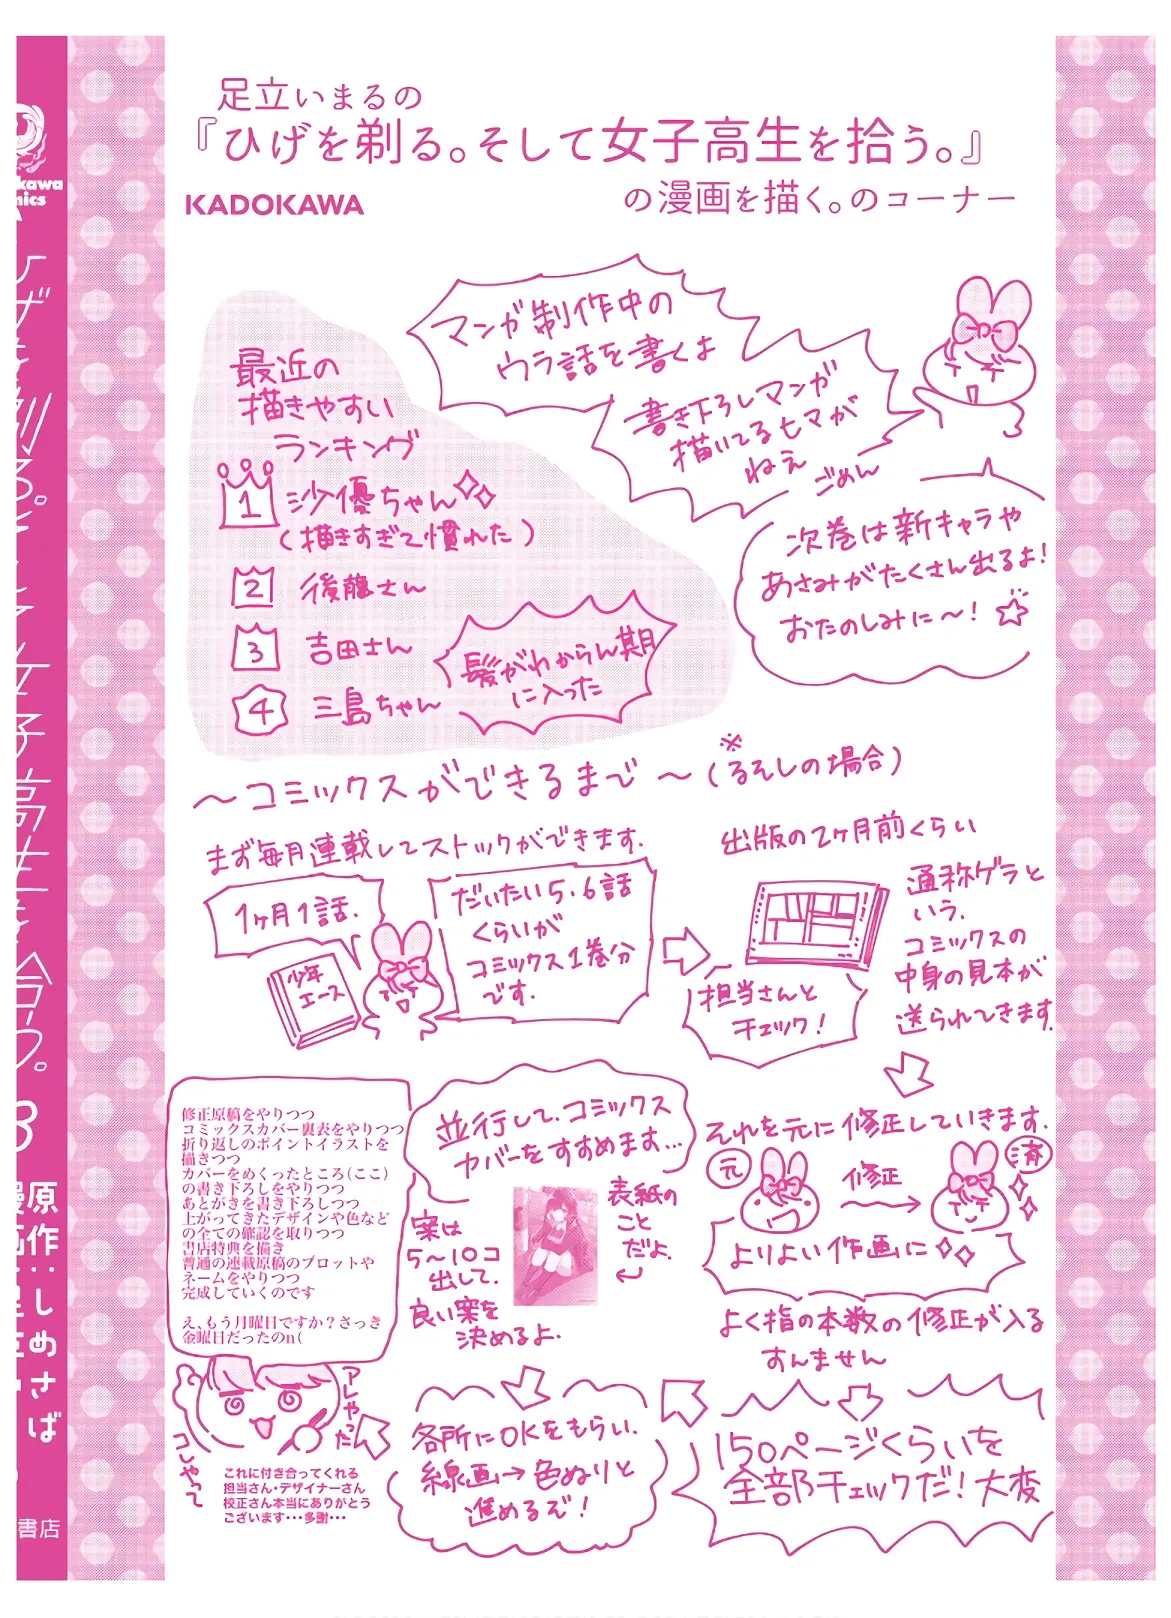 足立いまるの
『ひげを剃る。そして女子高生を拾う。』
の漫画を描く。のコーナー
KADOKAWA
マンガ制作中の
ウラ話を書くよ
書き下ろしマンガ
描いてるヒマが
ねえ
ごめん
次巻は新キャラや
あさみがたくさん出るよ!
おたのしみに〜!☆
最近の
描きやすい
ランキング
1 沙優ちゃん
(描きすぎて慣れた)
2 後藤さん
3 吉田さん
4 三島ちゃん
髪がわからん期
に入った
〜コミックスができるまで〜(※るそしの場合)
まず毎月連載してストックができます.
1ヶ月1話.
少年
エース
だいたい5.6話
くらいが
コミックス1巻分
です.
出版の2ヶ月前くらい
通称ゲラと
いう.
コミックスの
中身の見本が
送られてきます.
担当さんと
チェック!
それを元に修正していきます.
元
修正
済
よりよい作画に
よく指の本数の修正が入る
すんません
150ページくらいを
全部チェックだ!大変
並行して.コミックス
カバーをすすめます…
案は
5〜10コ
出して.
良い案を
決めるよ.
表紙の
こと
だよ.
各所にOKをもらい.
線画→色ぬりと
進めるぞ!
修正原稿をやりつつ
コミックスカバー裏表をやりつつ
折り返しのポイントイラストを
描きつつ
カバーをめくったところ(ここ)
の書き下ろしをやりつつ
あとがきを書き下ろしつつ
上がってきたデザインや色など
の全ての確認を取りつつ
書店特典を描き
普通の連載原稿のプロットや
ネームをやりつつ
完成していくのです
え、もう月曜日ですか?さっき
金曜日だったのn(
アレやった
コレやって
これに付き合ってくれる
担当さん・デザイナーさん
校正さん本当にありがとう
ございます・・・多謝・・・
3
原作:しめさば
書店